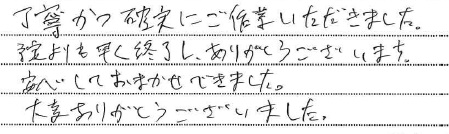 丁寧かつ確実にご作業いただきました。
予定よりも早く終了し、ありがとうございます。
安心しておまかせできました。
大変ありがとうございました。